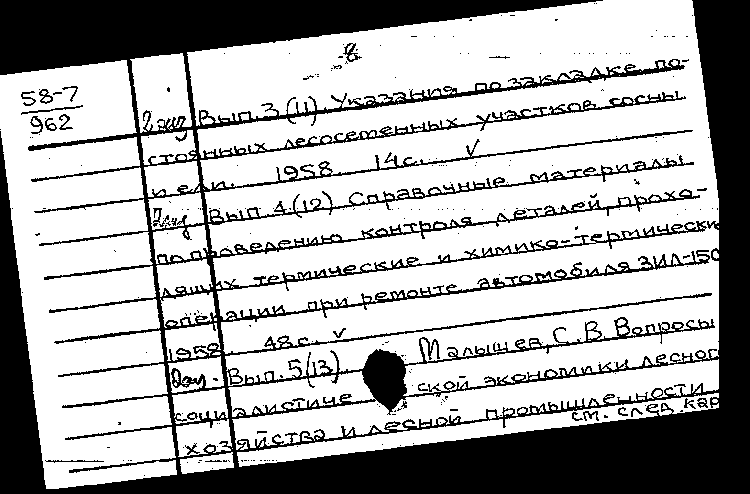 8
58-7
962
2 экз Вып. 3 (11). Указания по закладке по-
стоянных лесосеменных участков сосны
и ели. 1958. 14 с. ✓
2 экз Вып. 4 (12) Справочные материалы
по проведению контроля деталей, прохо-
дящих термические и химико-термически
операции при ремонте автомобиля ЗИЛ-150
1958. 48 с. ✓
Вып. 5 (13) Малышев, С. В. Вопросы
социалистиче ской экономики лесног
хозяйства и лесной промышленности
см. след кар